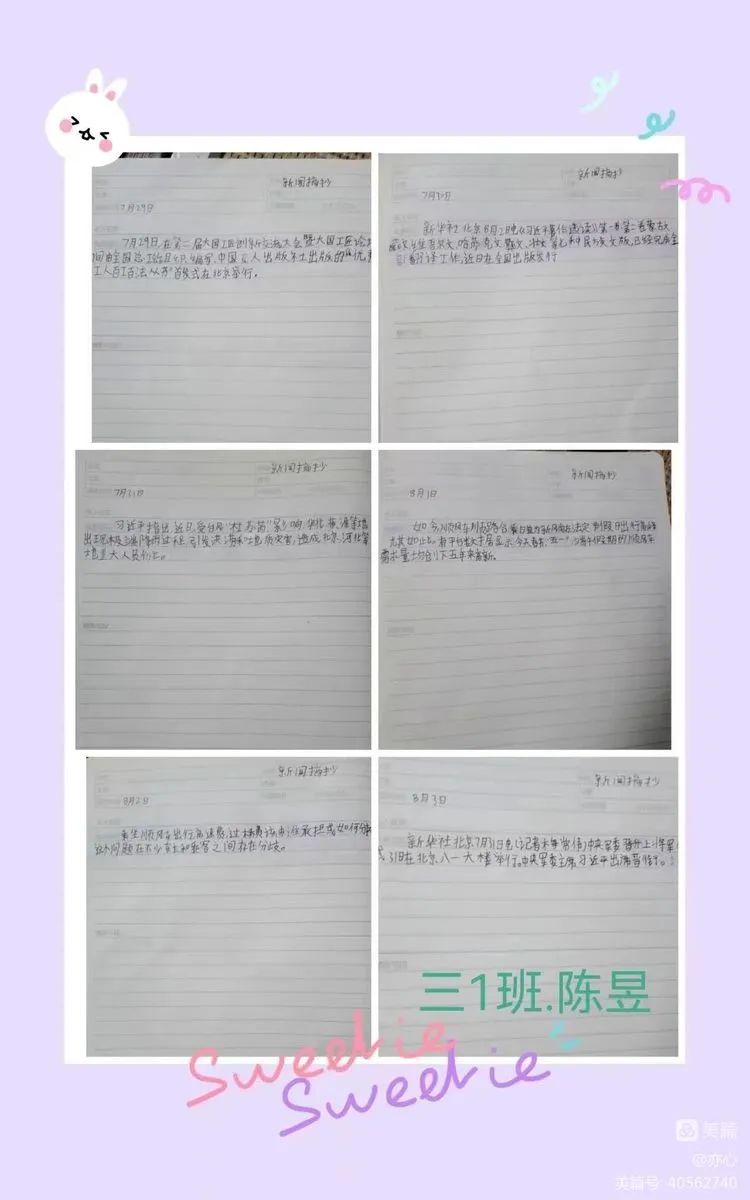 新闻摘抄
7月29日
7月29日,在第二届大国工匠创新交流大会暨大国工匠论坛
间由全国总工会组织编写、中国工人出版社出版的优秀
工人百工百法丛书首发式在北京举行。
新闻摘抄
新华社北京8月2日电《习近平著作选读》第一卷第二卷蒙古文
藏文、维吾尔文、哈萨克文、
翻译工作,近日在全国出版发行
新闻摘抄
7月31日
习近平指出,近日,受台风“杜苏芮”影响,华北、黄淮等地
出现极端降雨过程,引发洪涝和地质灾害,造成北京、河北等
地重大人员伤亡。
新闻摘抄
8月1日
尤其如此。有平台数据显示,今天春节、“五一”
需求量均创下五年来新高。
新闻摘抄
8月2日
乘坐顺风车出行高速费、过桥费该由谁承担或如何分
这个问题在不少车主和乘客之间存在分歧。
新闻摘抄
8月3日
新华社北京7月31日电(记者
式31日在北京八一大楼举行。中央军委主席习近平出席晋衔
三1班.陈昱
Sweetie
Sweetie
美篇
@亦心
美篇号 40562740